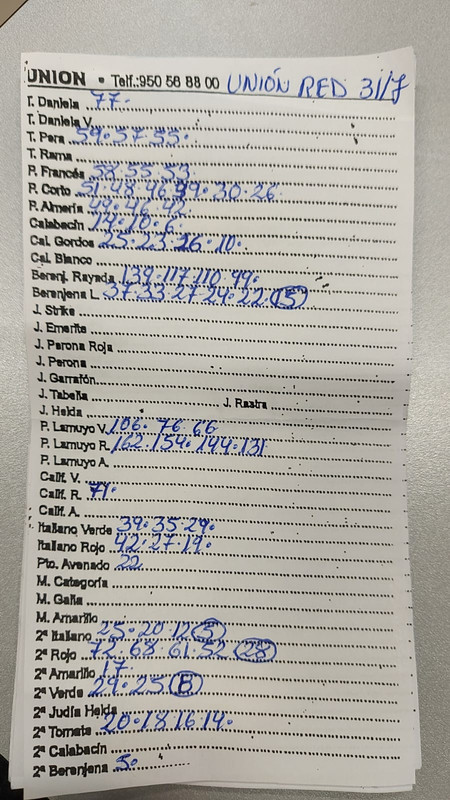 UNION • Telf.:950 56 88 00 UNIÓN RED 31/7
T. Daniela 77.
T. Daniela V.
T. Pera 59.57.55.
T. Rama
P. Francés 58.55.53
P. Corto 51.48.46.39.30.26.
P. Almería 49.46.42
Calabacín 14.10.6.
Cal. Gordos 25.23.26.10.
Cal. Blanco
Berenj. Rayada 139.117.110.99.
Berenjena L. 37.33.27.24.22.(15)
J. Strike
J. Emerite
J. Perona Roja
J. Perona
J. Garrafón
J. Tabella
J. Rastra
J. Helda
P. Lamuyo V. 106. 76.66
P. Lamuyo R. 162.154.144.131
P. Lamuyo A.
Calif. V.
Calif. R. 71.
Calif. A.
Italiano Verde 39.35.29.
Italiano Rojo 42.27.19.
Pto. Avenado 22
M. Categoría
M. Galia
M. Amarillo
2ª Italiano 25.20.12(5)
2ª Rojo 72.68.61.52(28)
2ª Amarillo 17.
2ª Verde 29.25(B)
2ª Judía Helda
2ª Tomate 20.18.16.14.
2ª Calabacín
2ª Berenjena 5.